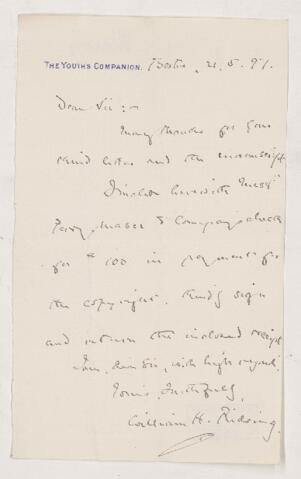 THE YOUTHS COMPANION. Boston, 21. 5. 91.
Dear Sir :—
Many thanks for your
kind letter and the manuscript
I inclose herewith Messrs
Perry Mason & Company's check
for $100 in payment for
the copyright. Kindly sign
and return the inclosed receipt
I am, dear Sir, with high regard,
Yours faithfully,
William H. Rideing.